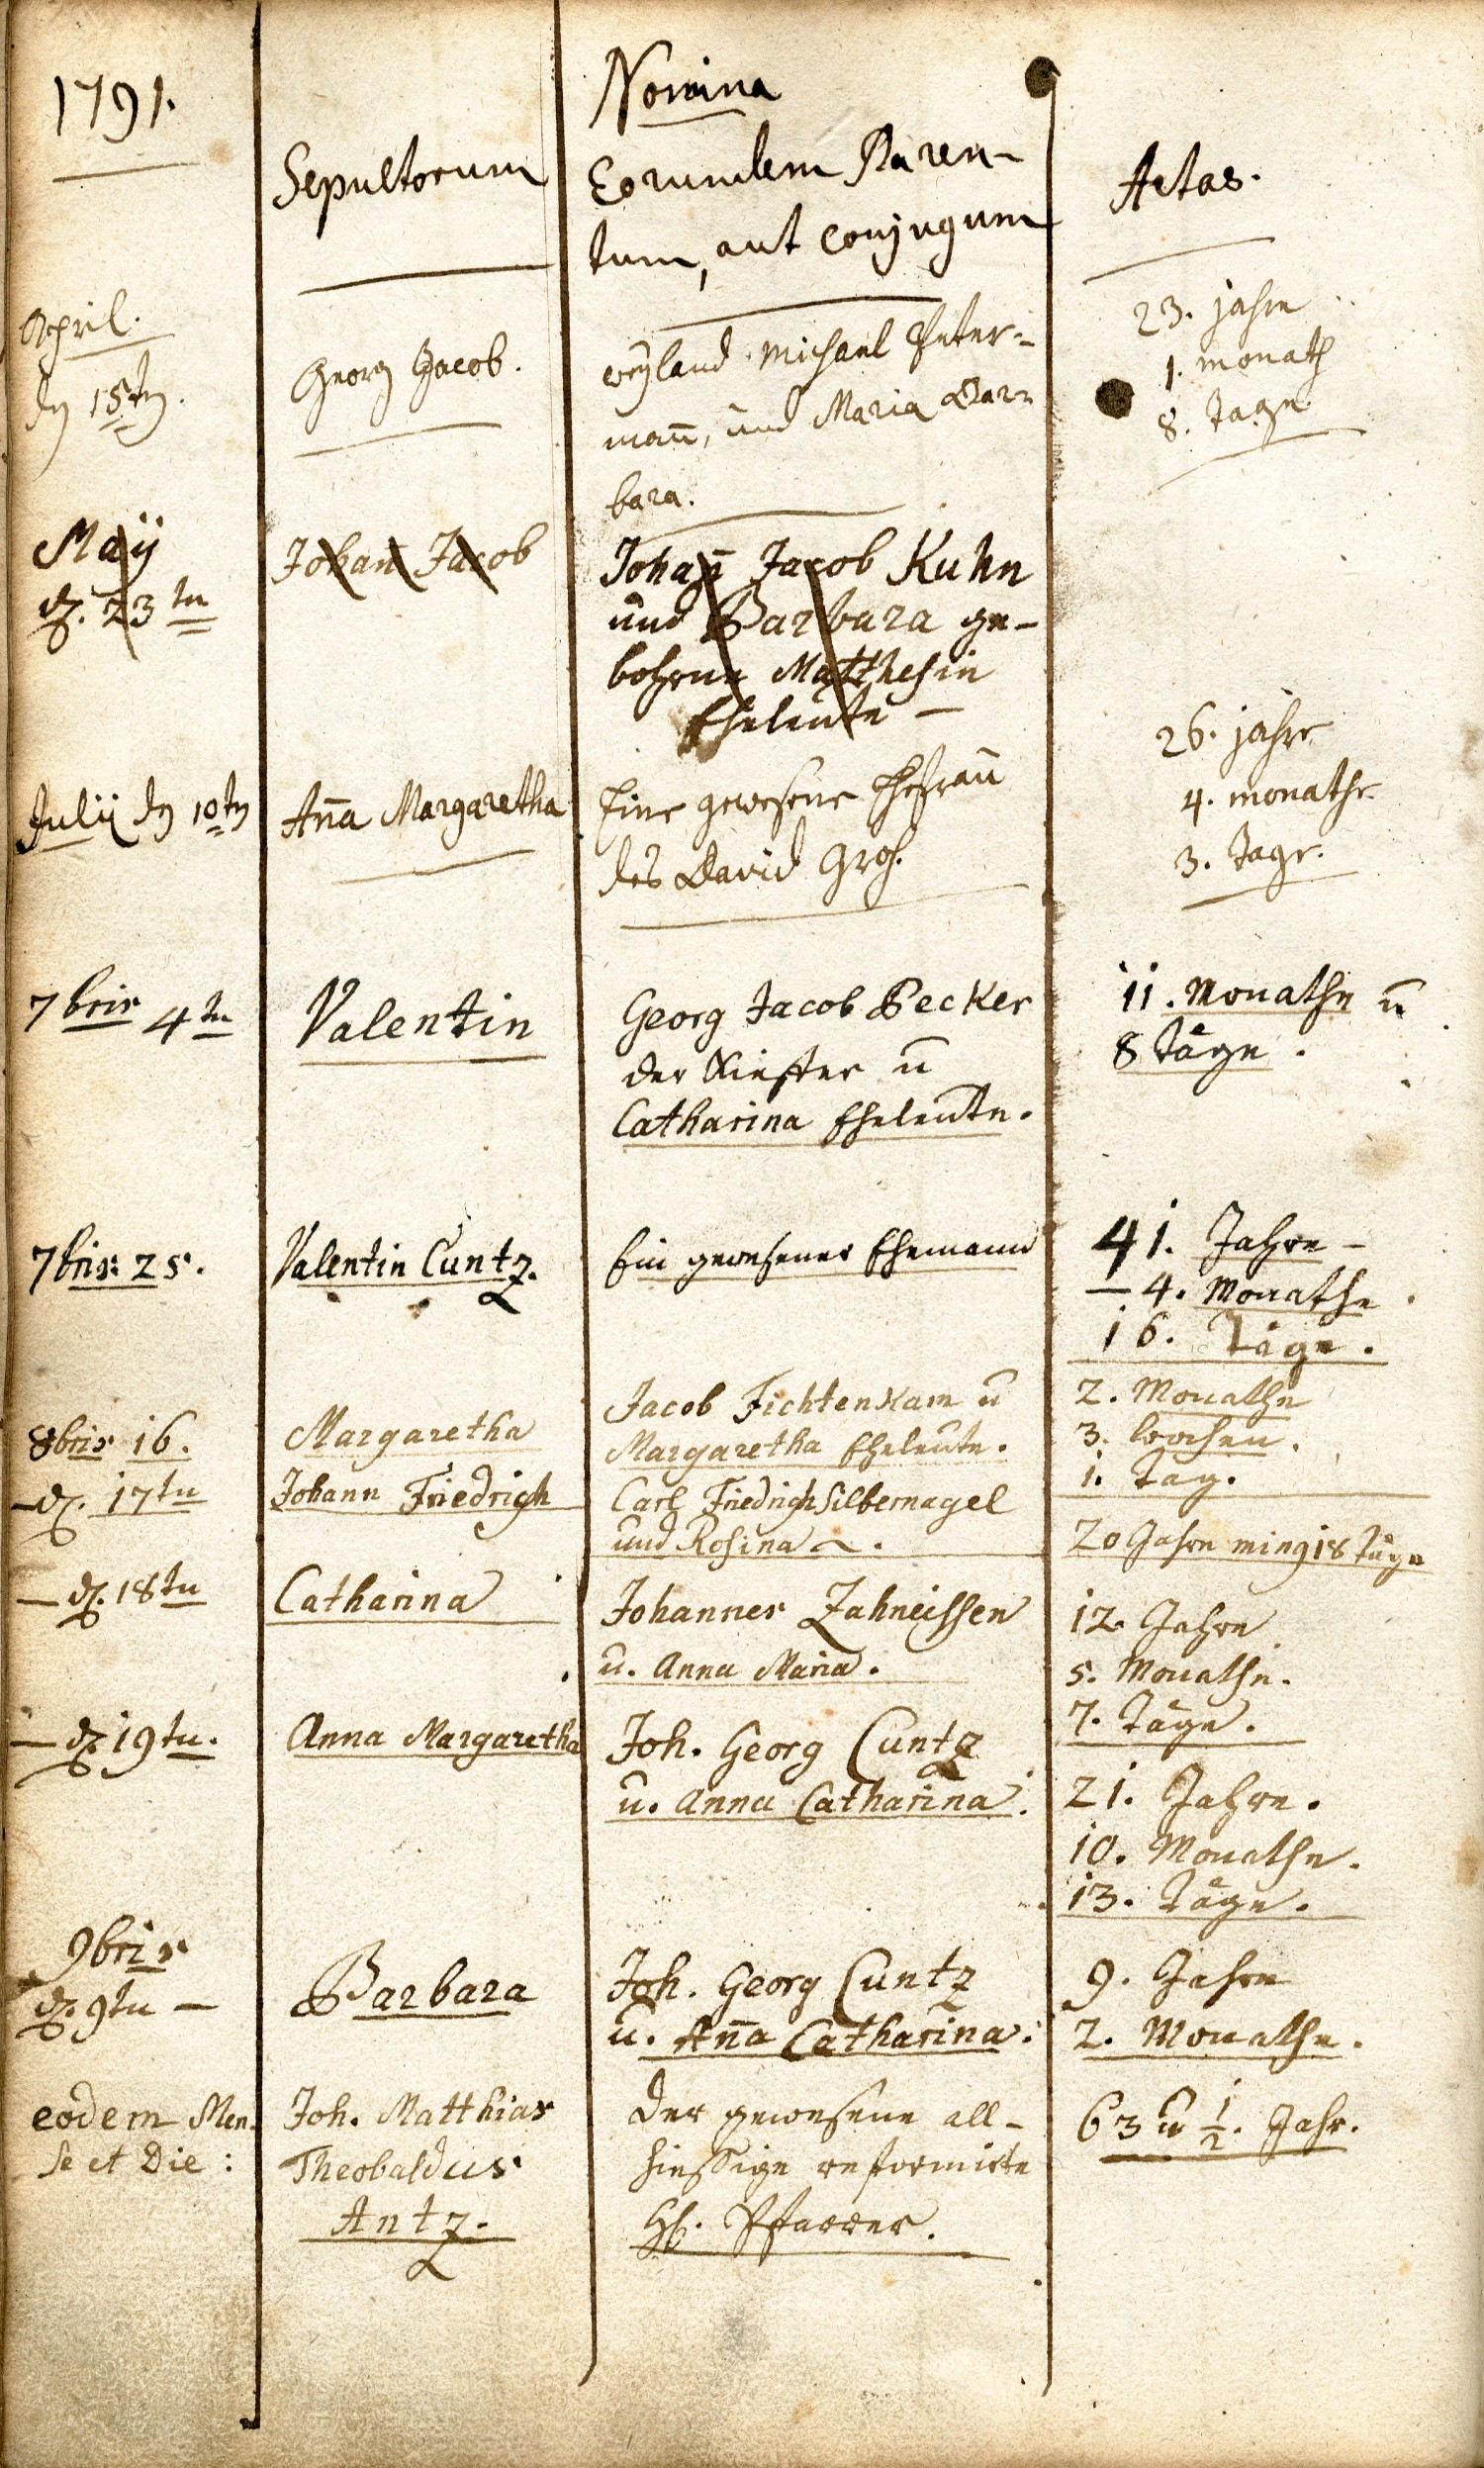 1791.
Nomina
Sepultorum
Eorundem Paren-
tum, aut conjugum
Aetas.
April.
dn 15tn.
Georg Jacob.
weyland Michael Peter-
man̄, und Maria Bar-
bara.
23. jahre
1. monath
8. tage
Maÿ
d. 23 tn
Johan̄ Jacob
Johan̄ Jacob Kuhn
und Barbara ge-
bohrne Matthesin
Eheleute -
Julÿ dn 10tn
An̄a Margaretha
Eine gewesene Ehefrau
des David Groß.
26. jahre
4. monathe.
3. tage.
7bris 4tn
Valentin
Georg Jacob Becker
der Kieffer u
Catharina Eheleute.
11. Monathe u
8 täge.
7bris: 25.
Valentin Cuntz.
Ein gewesener Ehemann
41. Jahre -
- 4. Monathe
16. Täge.
8bris 16.
Margaretha
Jacob Fichtenkam u
Margaretha Eheleute.
2. Monathe
3. wochen.
1. Tag.
- d. 17tn
Johann Friedrich
Carl Friedrich Silbernagel
und Rosina.
20 Jahre ming 18 täge
- d. 18tn
Catharina
Johannes Zahneissen
u. Anna Maria.
12. Jahre
5. Monathe.
7. Täge.
- d. 19tn.
Anna Margaretha
Joh. Georg Cuntz
u. Anna Catharina.
21. Jahre.
10. Monathe.
13. Täge.
9bris
d. 9tn -
Barbara
Joh. Georg Cuntz
u. An̄a Catharina.
9. Jahre
2. Monathe.
eodem Men-
se et Die:
Joh. Matthias
Theobaldus
Antz.
Der gewesene all-
hiessige reformirte
Hh. Pfarrer.
63 u 1/2. Jahr.